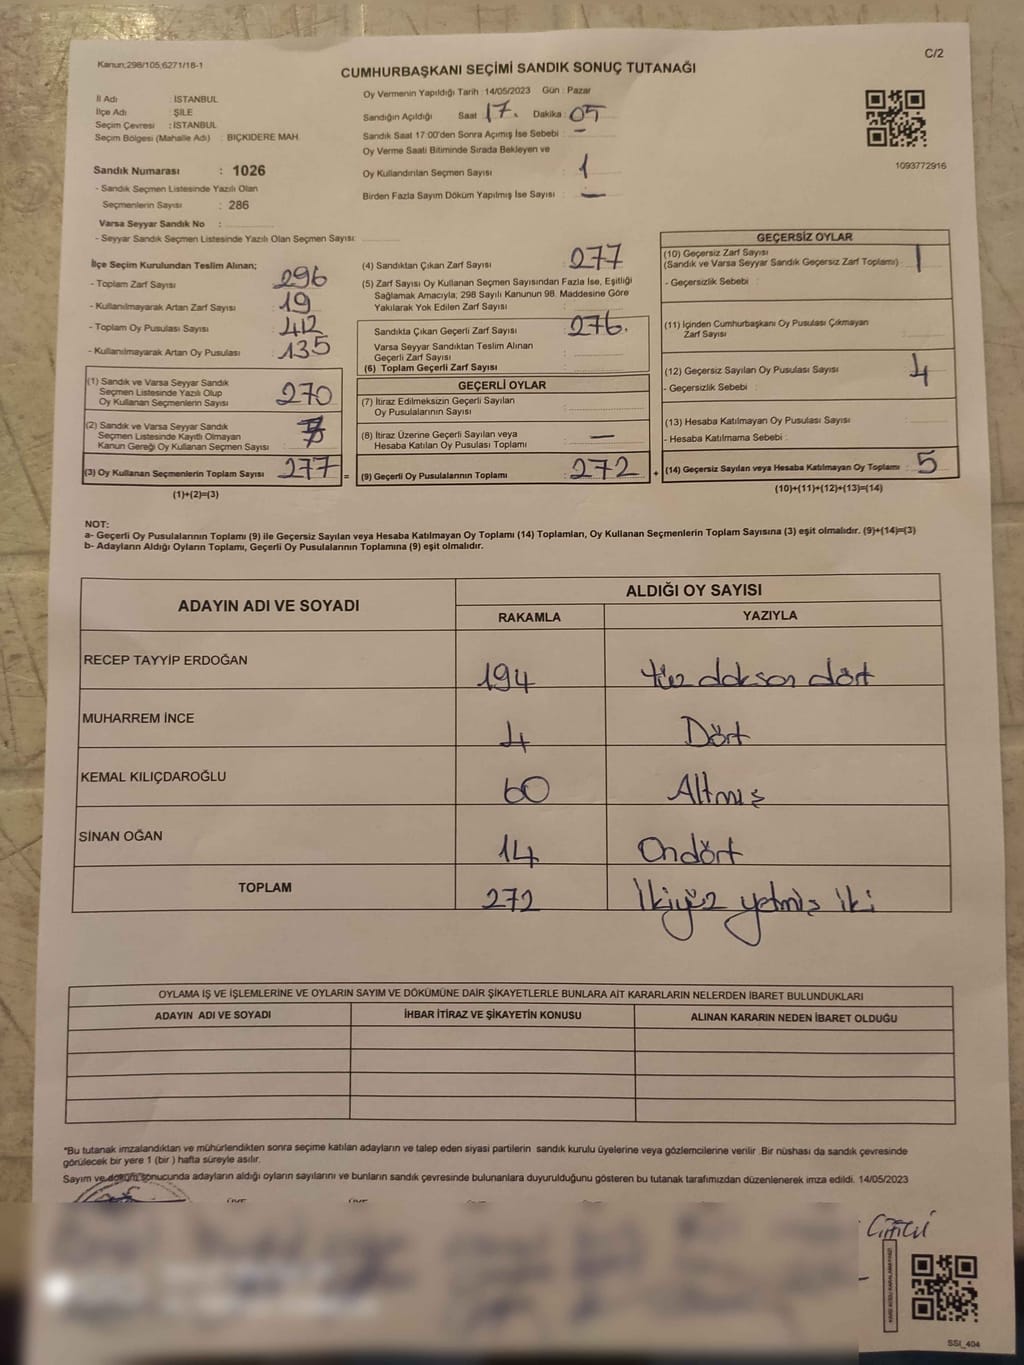 Kanun:298/105,6271/18-1
C/2
CUMHURBAŞKANI SEÇİMİ SANDIK SONUÇ TUTANAĞI
İl Adı : İSTANBUL
İlçe Adı : ŞİLE
Seçim Çevresi : İSTANBUL
Seçim Bölgesi (Mahalle Adı) : BIÇKIDERE MAH.
Sandık Numarası : 1026
- Sandık Seçmen Listesinde Yazılı Olan
Seçmenlerin Sayısı : 286
Varsa Seyyar Sandık No :
- Seyyar Sandık Seçmen Listesinde Yazılı Olan Seçmen Sayısı:
Oy Vermenin Yapıldığı Tarih : 14/05/2023 Gün : Pazar
Sandığın Açıldığı Saat 17. Dakika : 05
Sandık Saat 17:00'den Sonra Açımış İse Sebebi : –
Oy Verme Saati Bitiminde Sırada Bekleyen ve
Oy Kullandırılan Seçmen Sayısı : 1
Birden Fazla Sayım Döküm Yapılmış İse Sayısı : —
1093772916
İlçe Seçim Kurulundan Teslim Alınan;
- Toplam Zarf Sayısı : 296
- Kullanılmayarak Artan Zarf Sayısı : 19
- Toplam Oy Pusulası Sayısı : 412
- Kullanılmayarak Artan Oy Pusulası : 135
(1) Sandık ve Varsa Seyyar Sandık
Seçmen Listesinde Yazılı Olup
Oy Kullanan Seçmenlerin Sayısı : 270
(2) Sandık ve Varsa Seyyar Sandık
Seçmen Listesinde Kayıtlı Olmayan
Kanun Gereği Oy Kullanan Seçmen Sayısı : 7
(3) Oy Kullanan Seçmenlerin Toplam Sayısı : 277 =
(1)+(2)=(3)
(4) Sandıktan Çıkan Zarf Sayısı : 277
(5) Zarf Sayısı Oy Kullanan Seçmen Sayısından Fazla İse, Eşitliği
Sağlamak Amacıyla; 298 Sayılı Kanunun 98. Maddesine Göre
Yakılarak Yok Edilen Zarf Sayısı :
Sandıkta Çıkan Geçerli Zarf Sayısı : 276.
Varsa Seyyar Sandıktan Teslim Alınan
Geçerli Zarf Sayısı :
(6) Toplam Geçerli Zarf Sayısı :
GEÇERLİ OYLAR
(7) İtiraz Edilmeksizin Geçerli Sayılan
Oy Pusulalarının Sayısı :
(8) İtiraz Üzerine Geçerli Sayılan veya
Hesaba Katılan Oy Pusulası Toplamı : —
(9) Geçerli Oy Pusulalarının Toplamı : 272 +
GEÇERSİZ OYLAR
(10) Geçersiz Zarf Sayısı
(Sandık ve Varsa Seyyar Sandık Geçersiz Zarf Toplamı) : 1
- Geçersizlik Sebebi :
(11) İçinden Cumhurbaşkanı Oy Pusulası Çıkmayan
Zarf Sayısı :
(12) Geçersiz Sayılan Oy Pusulası Sayısı : 4
- Geçersizlik Sebebi :
(13) Hesaba Katılmayan Oy Pusulası Sayısı :
- Hesaba Katılmama Sebebi :
(14) Geçersiz Sayılan veya Hesaba Katılmayan Oy Toplamı : 5
(10)+(11)+(12)+(13)=(14)
NOT:
a- Geçerli Oy Pusulalarının Toplamı (9) ile Geçersiz Sayılan veya Hesaba Katılmayan Oy Toplamı (14) Toplamları, Oy Kullanan Seçmenlerin Toplam Sayısına (3) eşit olmalıdır. (9)+(14)=(3)
b- Adayların Aldığı Oyların Toplamı, Geçerli Oy Pusulalarının Toplamına (9) eşit olmalıdır.
ADAYIN ADI VE SOYADI ALDIĞI OY SAYISI
RAKAMLA YAZIYLA
RECEP TAYYİP ERDOĞAN 194 Yüz doksan dört
MUHARREM İNCE 4 Dört
KEMAL KILIÇDAROĞLU 60 Altmış
SİNAN OĞAN 14 Ondört
TOPLAM 272 İkiyüz yetmiş iki
OYLAMA İŞ VE İŞLEMLERİNE VE OYLARIN SAYIM VE DÖKÜMÜNE DAİR ŞİKAYETLERLE BUNLARA AİT KARARLARIN NELERDEN İBARET BULUNDUKLARI
ADAYIN ADI VE SOYADI İHBAR İTİRAZ VE ŞİKAYETİN KONUSU ALINAN KARARIN NEDEN İBARET OLDUĞU
*Bu tutanak imzalandıktan ve mühürlendikten sonra seçime katılan adayların ve talep eden siyasi partilerin sandık kurulu üyelerine veya gözlemcilerine verilir .Bir nüshası da sandık çevresinde
görülecek bir yere 1 (bir ) hafta süreyle asılır.
Sayım ve döküm sonucunda adayların aldığı oyların sayılarını ve bunların sandık çevresinde bulunanlara duyurulduğunu gösteren bu tutanak tarafımızdan düzenlenerek imza edildi. 14/05/2023
SSI_404